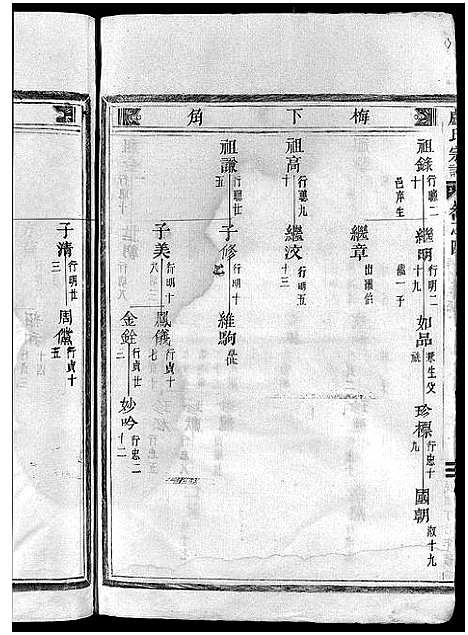 氏宗譜
梅下角
祖錄 行聰二十 邑庠生
繼明 行明二十九 繼一子
如品 庠生
珍標 行忠十九
國朝 叙十九
繼章 出
祖高 行聰九十
繼汶 行明五十三
祖謙 行聰廿五
子修 行明十
維駒
子美 行明十八
鳳儀 行貞十七
金銓 行貞廿三
妙吟 行忠二十二
子清 行明廿三
周黻 行貞十五